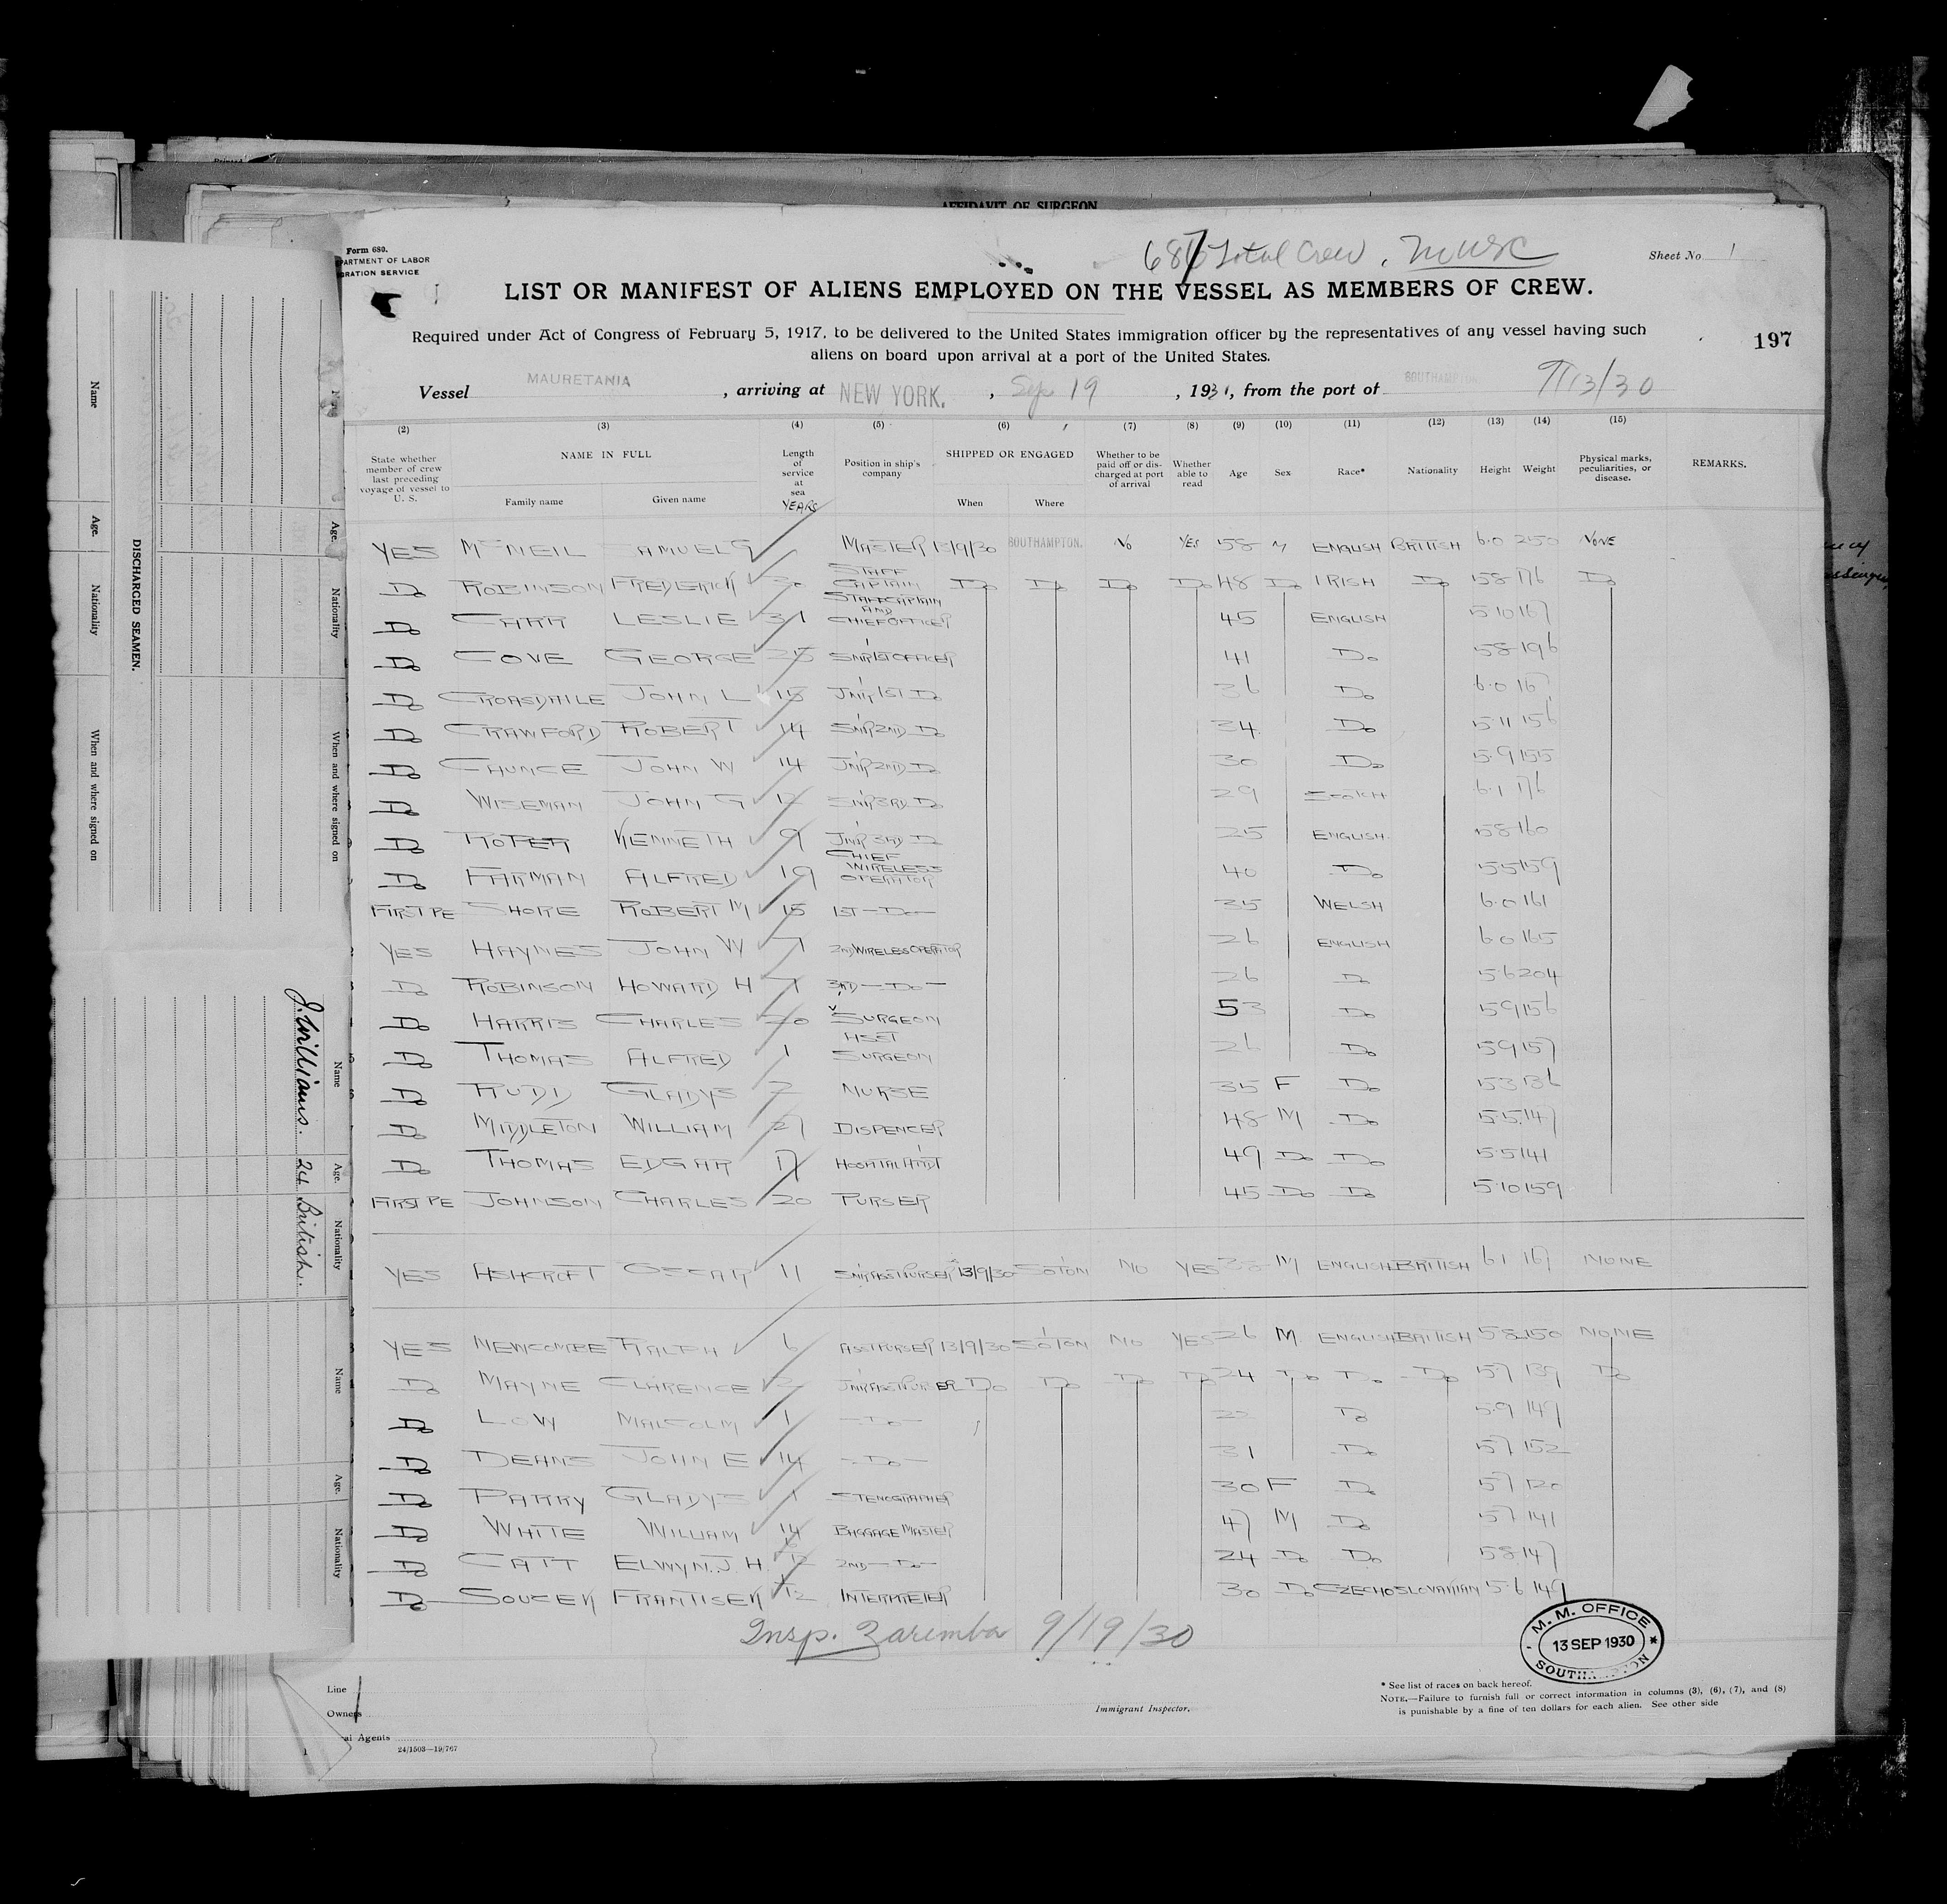 AFFIDAVIT OF SURGEON
Form 689.
PARTMENT OF LABOR
GRATION SERVICE
Total Crew.
Sheet No. 1
LIST OR MANIFEST OF ALIENS EMPLOYED ON THE VESSEL AS MEMBERS OF CREW.
Required under Act of Congress of February 5, 1917, to be delivered to the United States immigration officer by the representatives of any vessel having such
aliens on board upon arrival at a port of the United States.
197
Vessel MAURETANIA, arriving at NEW YORK., Sep 19, 193, from the port of SOUTHAMPTON 9/13/30
(2) (3) (4) (5) (6) (7) (8) (9) (10) (11) (12) (13) (14) (15)
State whether member of crew last preceding voyage of vessel to U. S. NAME IN FULL Family name Given name Length of service at sea YEARS Position in ship's company SHIPPED OR ENGAGED When Where Whether to be paid off or discharged at port of arrival Whether able to read Age Sex Race* Nationality Height Weight Physical marks, peculiarities, or disease. REMARKS.
YES McNEIL SAMUEL G MASTER 13/9/30 SOUTHAMPTON. No YES 58 M ENGLISH BRITISH 6.0 250 NONE
Do ROBINSON FREDERICK 30 STAFF CAPTAIN Do Do Do Do 48 Do IRISH Do 5.8 176 Do
Do CARR LESLIE 31 STAFF CAPTAIN AND CHIEF OFFICER 45 ENGLISH 5.10 167
Do COVE GEORGE 25 SNR 1ST OFFICER 41 Do 5.8 196
Do CROASDAILE JOHN L 15 JNR 1ST Do 36 Do 6.0 167
Do CRAWFORD ROBERT 14 SNR 2ND Do 34 Do 5.11 156
Do CAUNCE JOHN W 14 JNR 2ND Do 30 Do 5.9 155
Do WISEMAN JOHN G 12 SNR 3RD Do 29 SCOTCH 6.1 176
Do ROPER KENNETH 9 JNR 3RD Do 25 ENGLISH 5.8 160
Do FARMAN ALFRED 19 CHIEF WIRELESS OPERATOR 40 Do 5.5 159
FIRST PE SHORE ROBERT M 15 1ST Do 35 WELSH 6.0 161
YES HAYNES JOHN W 7 2ND WIRELES OPERATOR 26 ENGLISH 6.0 165
Do ROBINSON HOWARD H 7 3RD Do 26 Do 5.6 204
Do HARRIS CHARLES 20 SURGEON 53 Do 5.9 156
Do THOMAS ALFRED 1 ASST SURGEON 26 Do 5.9 157
Do RUDD GLADYS 2 NURSE 35 F Do 5.3 136
Do MIDDLETON WILLIAM 27 DISPENCER 48 M Do 5.5 147
Do THOMAS EDGAR 17 HOSPITAL ATTDT 49 Do Do 5.5 141
FIRST PE JOHNSON CHARLES 20 PURSER 45 Do Do 5.10 159
YES ASHCROFT OSCAR 11 SNR ASST PURSER 13/9/30 SOTON NO YES M ENGLISH BRITISH 6.1 167 NONE
YES NEWCOMBE RALPH 6 ASST PURSER 13/9/30 SOTON NO YES 26 M. ENGLISH BRITISH 5.8 150 NONE
Do MAYNE CLARENCE 2 JNR ASST PURSER Do Do Do Do 24 Do Do Do 5.7 139 Do
Do LOW MALCOLM 1 Do 22 Do 5.9 147
Do DEANS JOHN E 14 Do 31 Do 5.7 152
Do PARRY GLADYS 1 STENOGRAPHER 30 F Do 5.7 120
Do WHITE WILLIAM 14 BAGGAGE MASTER 47 M Do 5.7 141
Do CATT ELWYN. J. H 2ND Do 24 Do Do 5.8 147
Do SOUCEK FRANTISEK 12 INTERPRETER 30 Do CZECHOSLOVAKIAN 5.6 149
Insp. Zaremba 9/19/30
M. M. OFFICE
13 SEP 1930
SOUTHAMPTON
Line
Owners
al Agents
24/1503—19/767
Immigrant Inspector.
* See list of races on back hereof.
NOTE.—Failure to furnish full or correct information in columns (3), (6), (7), and (8)
is punishable by a fine of ten dollars for each alien. See other side
DISCHARGED SEAMEN.
Name Age. Nationality When and where signed on
Age. Nationality When and where signed on
Name Age. Nationality
Name Age. Nationality
J. Williams. 24 British.